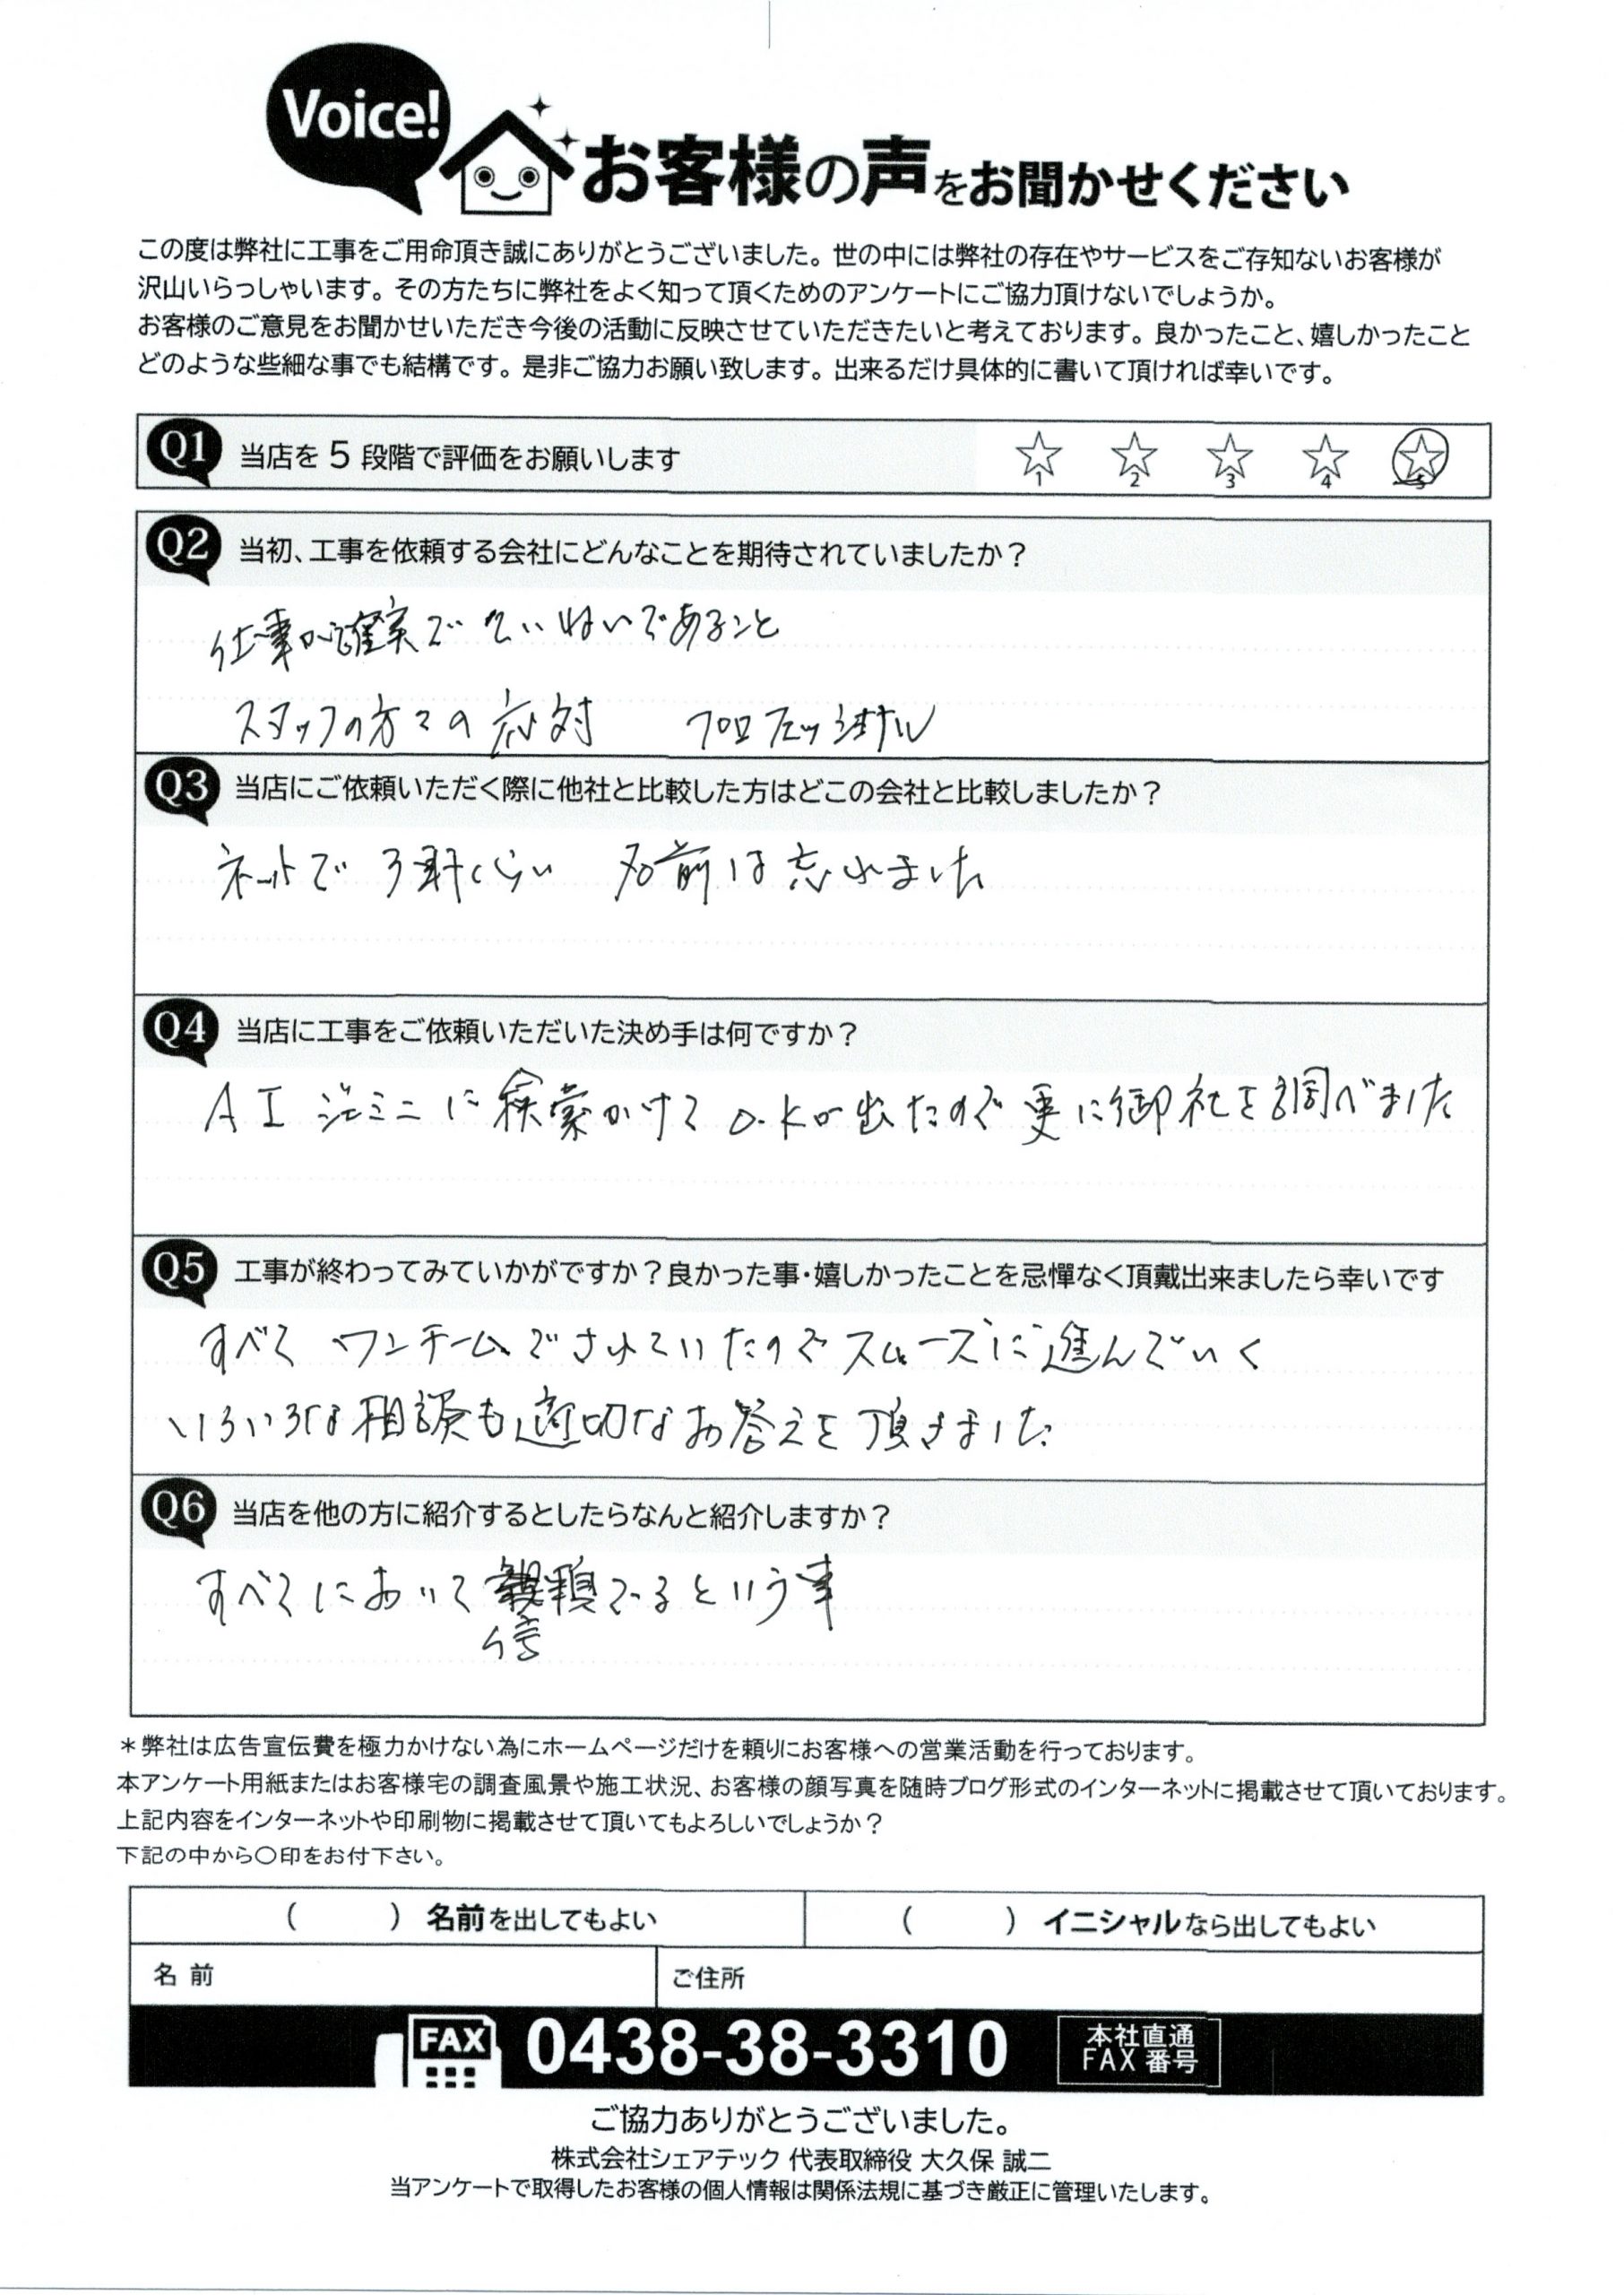 Voice!
お客様の声をお聞かせください
この度は弊社に工事をご用命頂き誠にありがとうございました。世の中には弊社の存在やサービスをご存知ないお客様が
沢山いらっしゃいます。その方たちに弊社をよく知って頂くためのアンケートにご協力頂けないでしょうか。
お客様のご意見をお聞かせいただき今後の活動に反映させていただきたいと考えております。良かったこと、嬉しかったこと
どのような些細な事でも結構です。是非ご協力お願い致します。出来るだけ具体的に書いて頂ければ幸いです。
Q1 当店を5段階で評価をお願いします 1 2 3 4 5
Q2 当初、工事を依頼する会社にどんなことを期待されていましたか?
仕事が確実でていねいであること
スタッフの方々の応対 プロフェッショナル
Q3 当店にご依頼いただく際に他社と比較した方はどこの会社と比較しましたか?
ネットで3軒くらい 名前は忘れました
Q4 当店に工事をご依頼いただいた決め手は何ですか?
AIジェミニに検索かけてO.Kが出たので更に御社を調べました
Q5 工事が終わってみていかがですか?良かった事・嬉しかったことを忌憚なく頂戴出来ましたら幸いです
すべてワンチームでされていたのでスムーズに進んでいく
いろいろな相談も適切なお答えを頂きました
Q6 当店を他の方に紹介するとしたらなんと紹介しますか?
すべてにおいて信頼できるという事
*弊社は広告宣伝費を極力かけない為にホームページだけを頼りにお客様への営業活動を行っております。
本アンケート用紙またはお客様宅の調査風景や施工状況、お客様の顔写真を随時ブログ形式のインターネットに掲載させて頂いております。
上記内容をインターネットや印刷物に掲載させて頂いてもよろしいでしょうか?
下記の中から〇印をお付下さい。
( ) 名前を出してもよい ( ) イニシャルなら出してもよい
名前 ご住所
FAX 0438-38-3310 本社直通
FAX番号
ご協力ありがとうございました。
株式会社シェアテック 代表取締役 大久保 誠二
当アンケートで取得したお客様の個人情報は関係法規に基づき厳正に管理いたします。